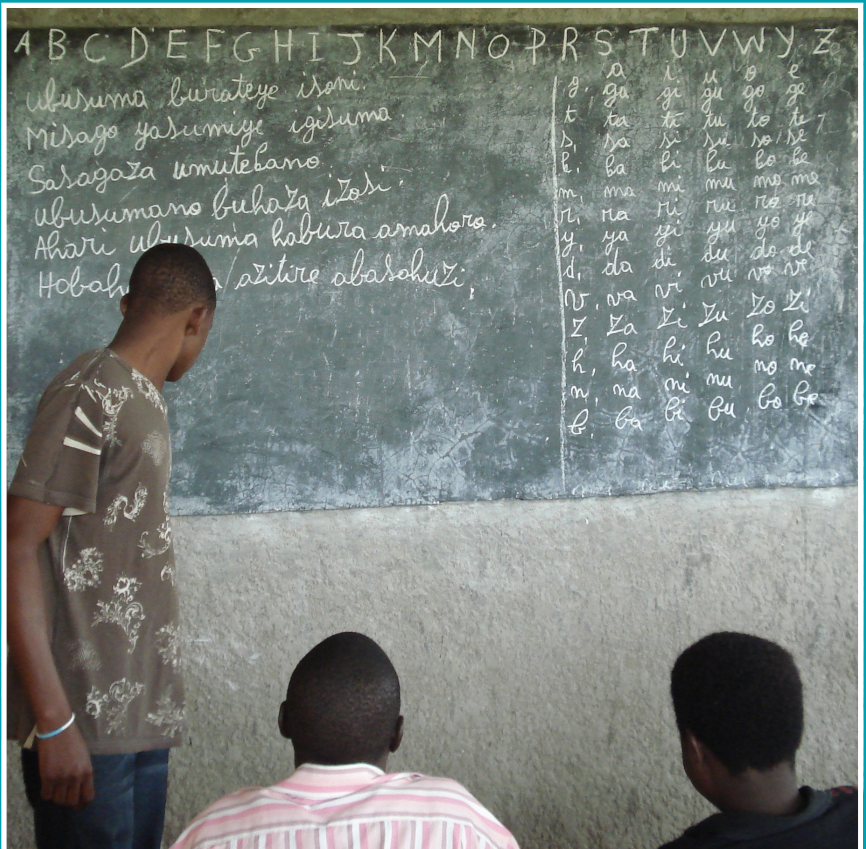 A B C D E F G H I J K M N O P R S T U V W Y Z
ubusuma burateye isoni.
Misago yasumiye igisuma.
Sasagaza umutebano.
ubusumano buhaza izosi.
Ahari ubusuma habura amahoro.
azitire abasohuzi,
a i u o e
g, ga gi gu go ge
t, ta ti tu to te
s, sa si su so se
k, ka ki ku ko ke
m, ma mi mu mo me
r, ra ri ru ro re
y, ya yi yu yo ye
d, da di du do de
v, va vi vu vo ve
z, za zi zu zo zi
h, ha hi hu ho he
n, na ni nu no ne
b, ba bi bu bo be